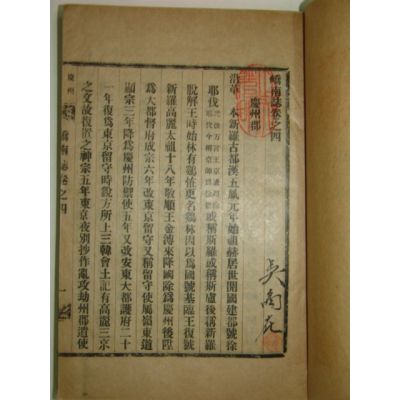 嶠南誌卷之四
慶州郡
沿革 本新羅古都漢五鳳元年始祖赫居世開國建都號徐
耶伐 或稱斯羅或稱斯盧後稱新羅
脫解王時始林有鷄恠更名鷄林因以爲國號基臨王復號
新羅高麗太祖十八年敬順王金溥來降國除爲慶州後陞
爲大都督府成宗六年改東京留守又稱留守使屬嶺東道
顯宗三年降爲慶州防禦使五年又改安東大都護府二十
一年復爲東京留守時銳方所上三韓會土記有高麗三京
之文故復置之神宗五年東京夜別抄作亂攻劫州郡遣使
慶州 嶠南誌卷之四 一